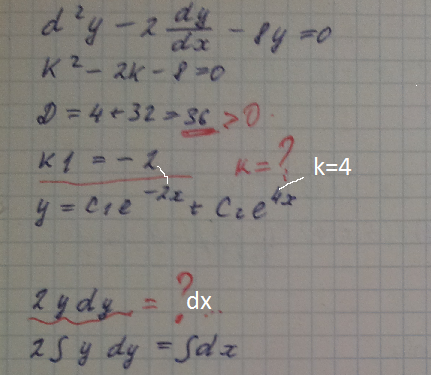 d²y - 2 dy/dx - 8y = 0
k² - 2k - 8 = 0
D = 4 + 32 = 36 > 0
k1 = - 2 k = ? k=4
y = C₁e^-2x + C₂e^4x
2ydy = ? dx
2∫y dy = ∫dx